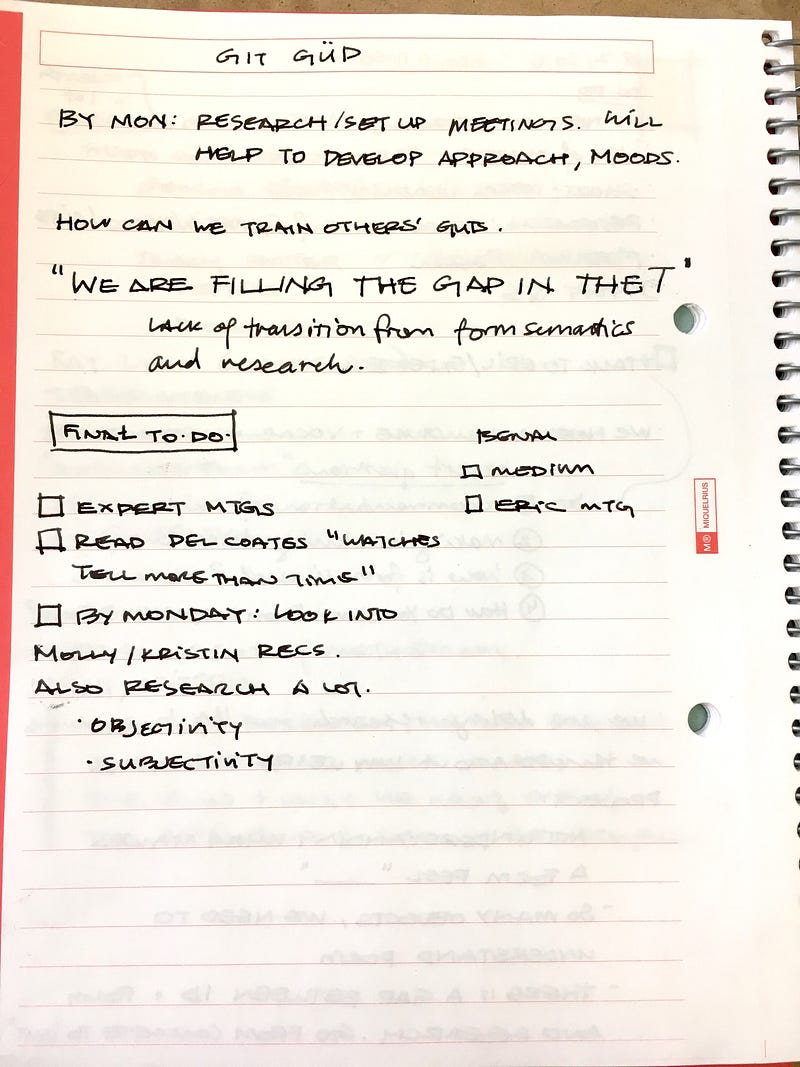 GIT GÜD
BY MON: RESEARCH/SET UP MEETINGS. WILL
HELP TO DEVELOP APPROACH, MOODS.
HOW CAN WE TRAIN OTHERS' GUTS.
"WE ARE FILLING THE GAP IN THE T"
LACK of transition from form semantics
and research.
FINAL TO·DO·
EXPERT MTGS
READ DEL COATES "WATCHES
TELL MORE THAN TIME"
BY MONDAY: LOOK INTO
MOLLY/KRISTIN RECS.
ALSO RESEARCH A LOT.
· OBJECTIVITY
· SUBJECTIVITY
MEDIUM
ERIC MTG
M® MIQUELRIUS